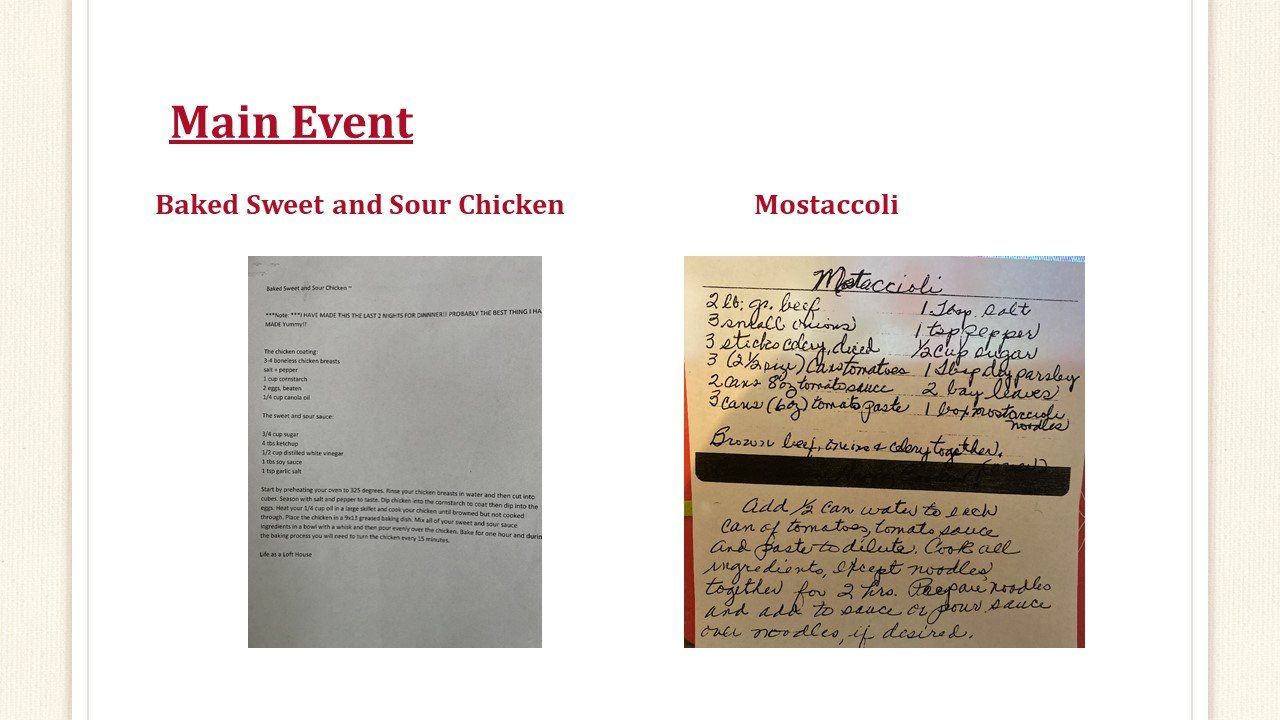 Main Event
Baked Sweet and Sour Chicken
Mostaccoli
Baked Sweet and Sour Chicken ~
***Note: ***I HAVE MADE THIS THE LAST 2 NIGHTS FOR DINNNER!! PROBABLY THE BEST THING I HA
MADE Yummy!!
The chicken coating:
3-4 boneless chicken breasts
salt + pepper
1 cup cornstarch
2 eggs, beaten
1/4 cup canola oil
The sweet and sour sauce:
3/4 cup sugar
4 tbs ketchup
1/2 cup distilled white vinegar
1 tbs soy sauce
1 tsp garlic salt
Start by preheating your oven to 325 degrees. Rinse your chicken breasts in water and then cut into
cubes. Season with salt and pepper to taste. Dip chicken into the cornstarch to coat then dip into the
eggs. Heat your 1/4 cup oil in a large skillet and cook your chicken until browned but not cooked
through. Place the chicken in a 9x13 greased baking dish. Mix all of your sweet and sour sauce
ingredients in a bowl with a whisk and then pour evenly over the chicken. Bake for one hour and durin
the baking process you will need to turn the chicken every 15 minutes.
Life as a Loft House
Mostaccioli
2 lb. gr. beef
3 small onions
3 sticks celery, diced
3 (2½ size) cans tomatoes
2 cans 8oz tomato sauce
3 cans (6oz) tomato paste
1 Tbsp. salt
1 tsp pepper
½ cup sugar
1 Tbsp dry parsley
2 bay leaves
1 box mostaccioli
noodles
Brown beef, onions & celery together.
Add ½ can water to each
can of tomatoes, tomato sauce
and paste to dilute. Cook all
ingredients, except noodles,
together for 2 hrs. Prepare noodles
and add to sauce or pour sauce
over noodles, if desired.